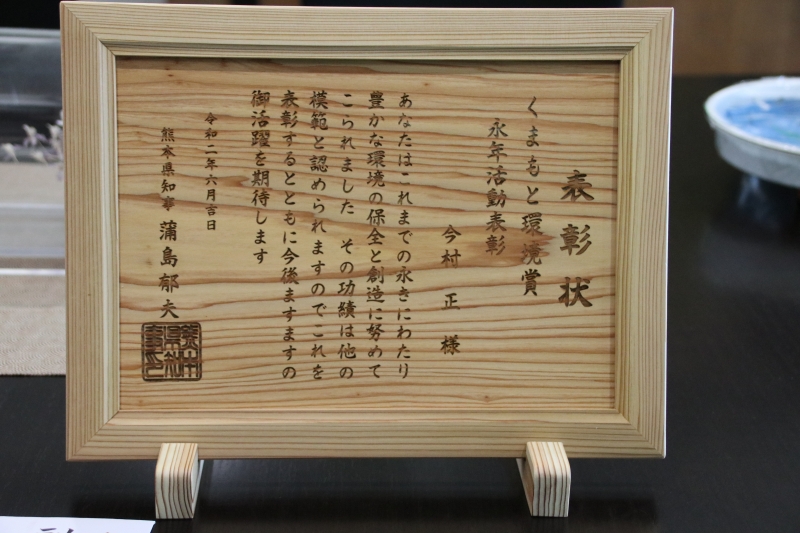 表彰状
くまもと環境賞
永年活動表彰
今村 正 様
あなたはこれまでの永きにわたり
豊かな環境の保全と創造に努めて
こられました その功績は他の
模範と認められますのでこれを
表彰するとともに今後ますますの
御活躍を期待します
令和二年六月吉日
熊本県知事 蒲島郁夫